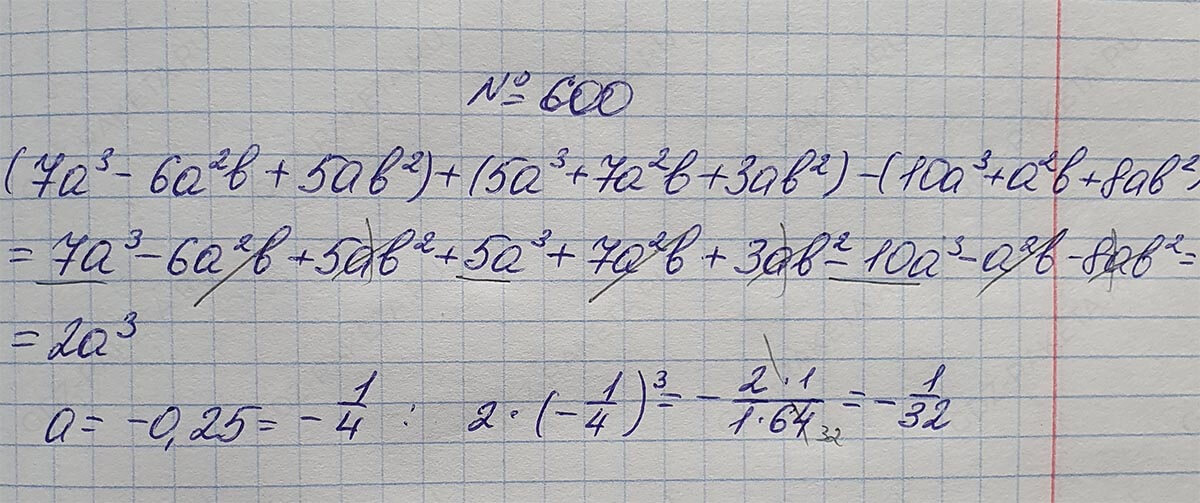 № 600
(7a³ - 6a²b + 5ab²) + (5a³ + 7a²b + 3ab²) - (10a³ + a²b + 8ab²)
= 7a³ - 6a²b + 5ab² + 5a³ + 7a²b + 3ab² - 10a³ - a²b - 8ab² =
= 2a³
a = -0,25 = - 1/4 : 2 · (- 1/4)³ = - 2 · 1/1 · 64 32 = - 1/32